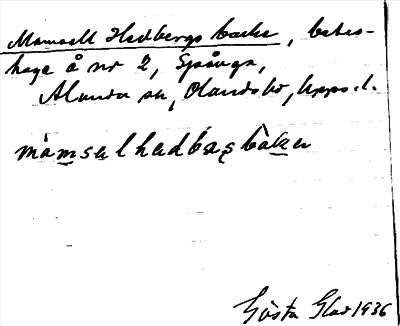 Mamsell Hedbergs backe, betes-
hage å nr 2, Spånga,
Alunda sn, Olands hd, Upps. l.
mamselhedbaṣbàkɐn
Gösta Glad 1936